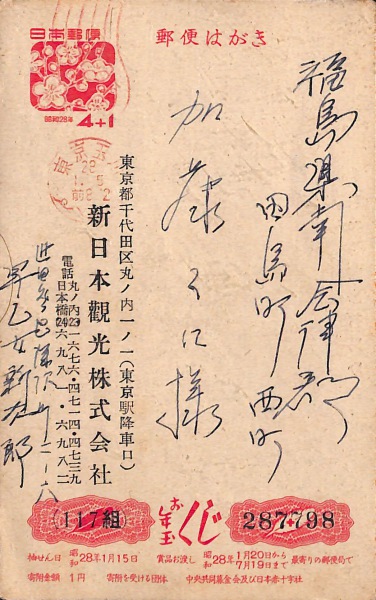 日本郵便
昭和28年 4+1
郵便はがき
福島県南会津郡
田島町西町
加藤くに様
東京都千代田区丸ノ内一ノ一(東京駅降車口)
新日本觀光株式会社
電話 丸ノ内23 一六七六・四七一四・四七三九
日本橋24 六九八一・六九八二
早乙女新左郎
お年玉くじ
117組
287798
抽せん日 昭和28年1月15日 賞品お渡し 昭和28年 1月20日から 7月19日まで 最寄りの郵便局で
寄附金額 1円 寄附を受ける団体 中央共同募金会及び日本赤十字社